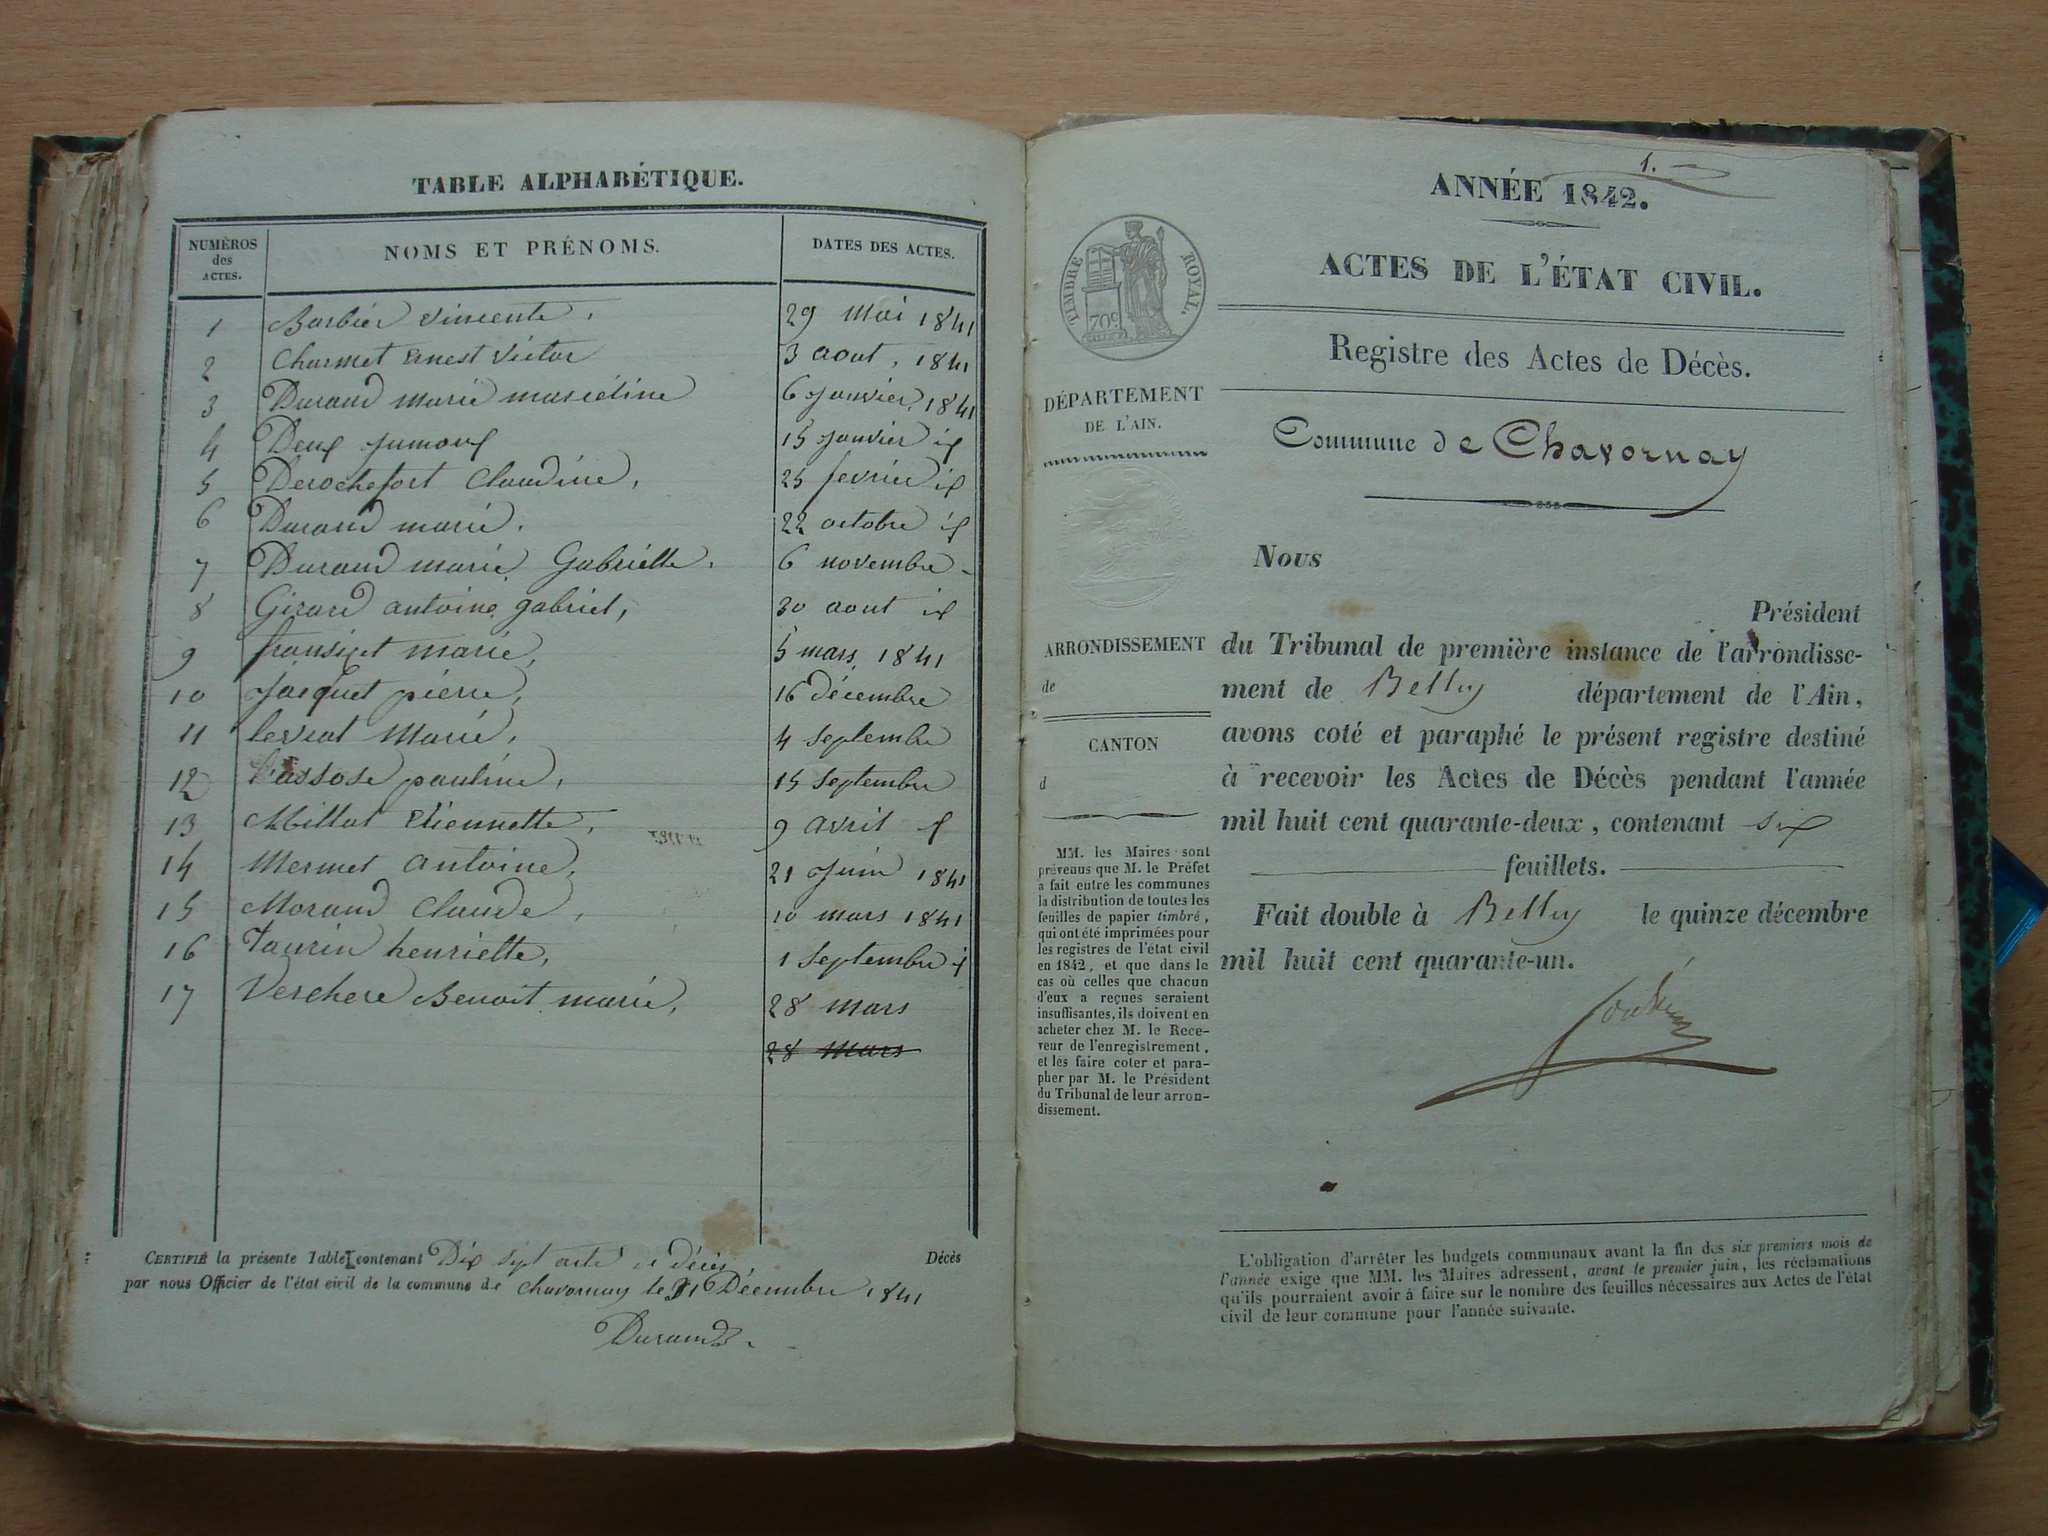 TABLE ALPHABÉTIQUE.
NUMÉROS des ACTES.
NOMS ET PRÉNOMS.
DATES DES ACTES.
1 Barbier vincente, 29 Mai 1841
2 Charmet Ernest Victor 3 aout, 1841
3 Durand marie marcéline 6 Janvier, 1841
4 Deux Jumoux 15 Janvier id
5 Derochefort Claudine, 25 fevrier id
6 Durand marie, 22 octobre id
7 Durand marie Gabrielle, 6 novembre -
8 Girard antoine gabriel, 30 aout id
9 marie, 5 mars, 1841
10 Jacquet pierre, 16 décembre
11 levrat Marie, 4 septembre
12 pauline, 15 septembre
13 Millat Etiennette, 9 avril
14 Mermet antoine, 21 Juin 1841
15 Morand Claude, 10 mars 1841
16 Taurin henriette, 1 septembre
17 Verchere Benoit marie, 28 mars
28 mars
CERTIFIÉ la présente Table contenant Dix sept acte de décès Décès
par nous Officier de l'état civil de la commune de chavornay le Décembre 1841
Durand
1.
ANNÉE 1842.
ACTES DE L'ÉTAT CIVIL.
Registre des Actes de Décès.
Commune de Chavornay
TIMBRE ROYAL.
70c
DÉPARTEMENT
DE L'AIN.
ARRONDISSEMENT
de
CANTON
d
MM. les Maires sont
prévenus que M. le Préfet
a fait entre les communes
la distribution de toutes les
feuilles de papier timbré,
qui ont été imprimées pour
les registres de l'état civil
en 1842, et que dans le
cas où celles que chacun
d'eux a reçues seraient
insuffisantes, ils doivent en
acheter chez M. le Rece-
veur de l'enregistrement,
et les faire coter et para-
pher par M. le Président
du Tribunal de leur arron-
dissement.
Nous
Président
du Tribunal de première instance de l'arrondisse-
ment de Belley département de l'Ain,
avons coté et paraphé le présent registre destiné
à recevoir les Actes de Décès pendant l'année
mil huit cent quarante-deux, contenant six
feuillets.
Fait double à Belley le quinze décembre
mil huit cent quarante-un.
L'obligation d'arrêter les budgets communaux avant la fin des six premiers mois de
l'année exige que MM. les Maires adressent, avant le premier juin, les réclamations
qu'ils pourraient avoir à faire sur le nombre des feuilles nécessaires aux Actes de l'état
civil de leur commune pour l'année suivante.